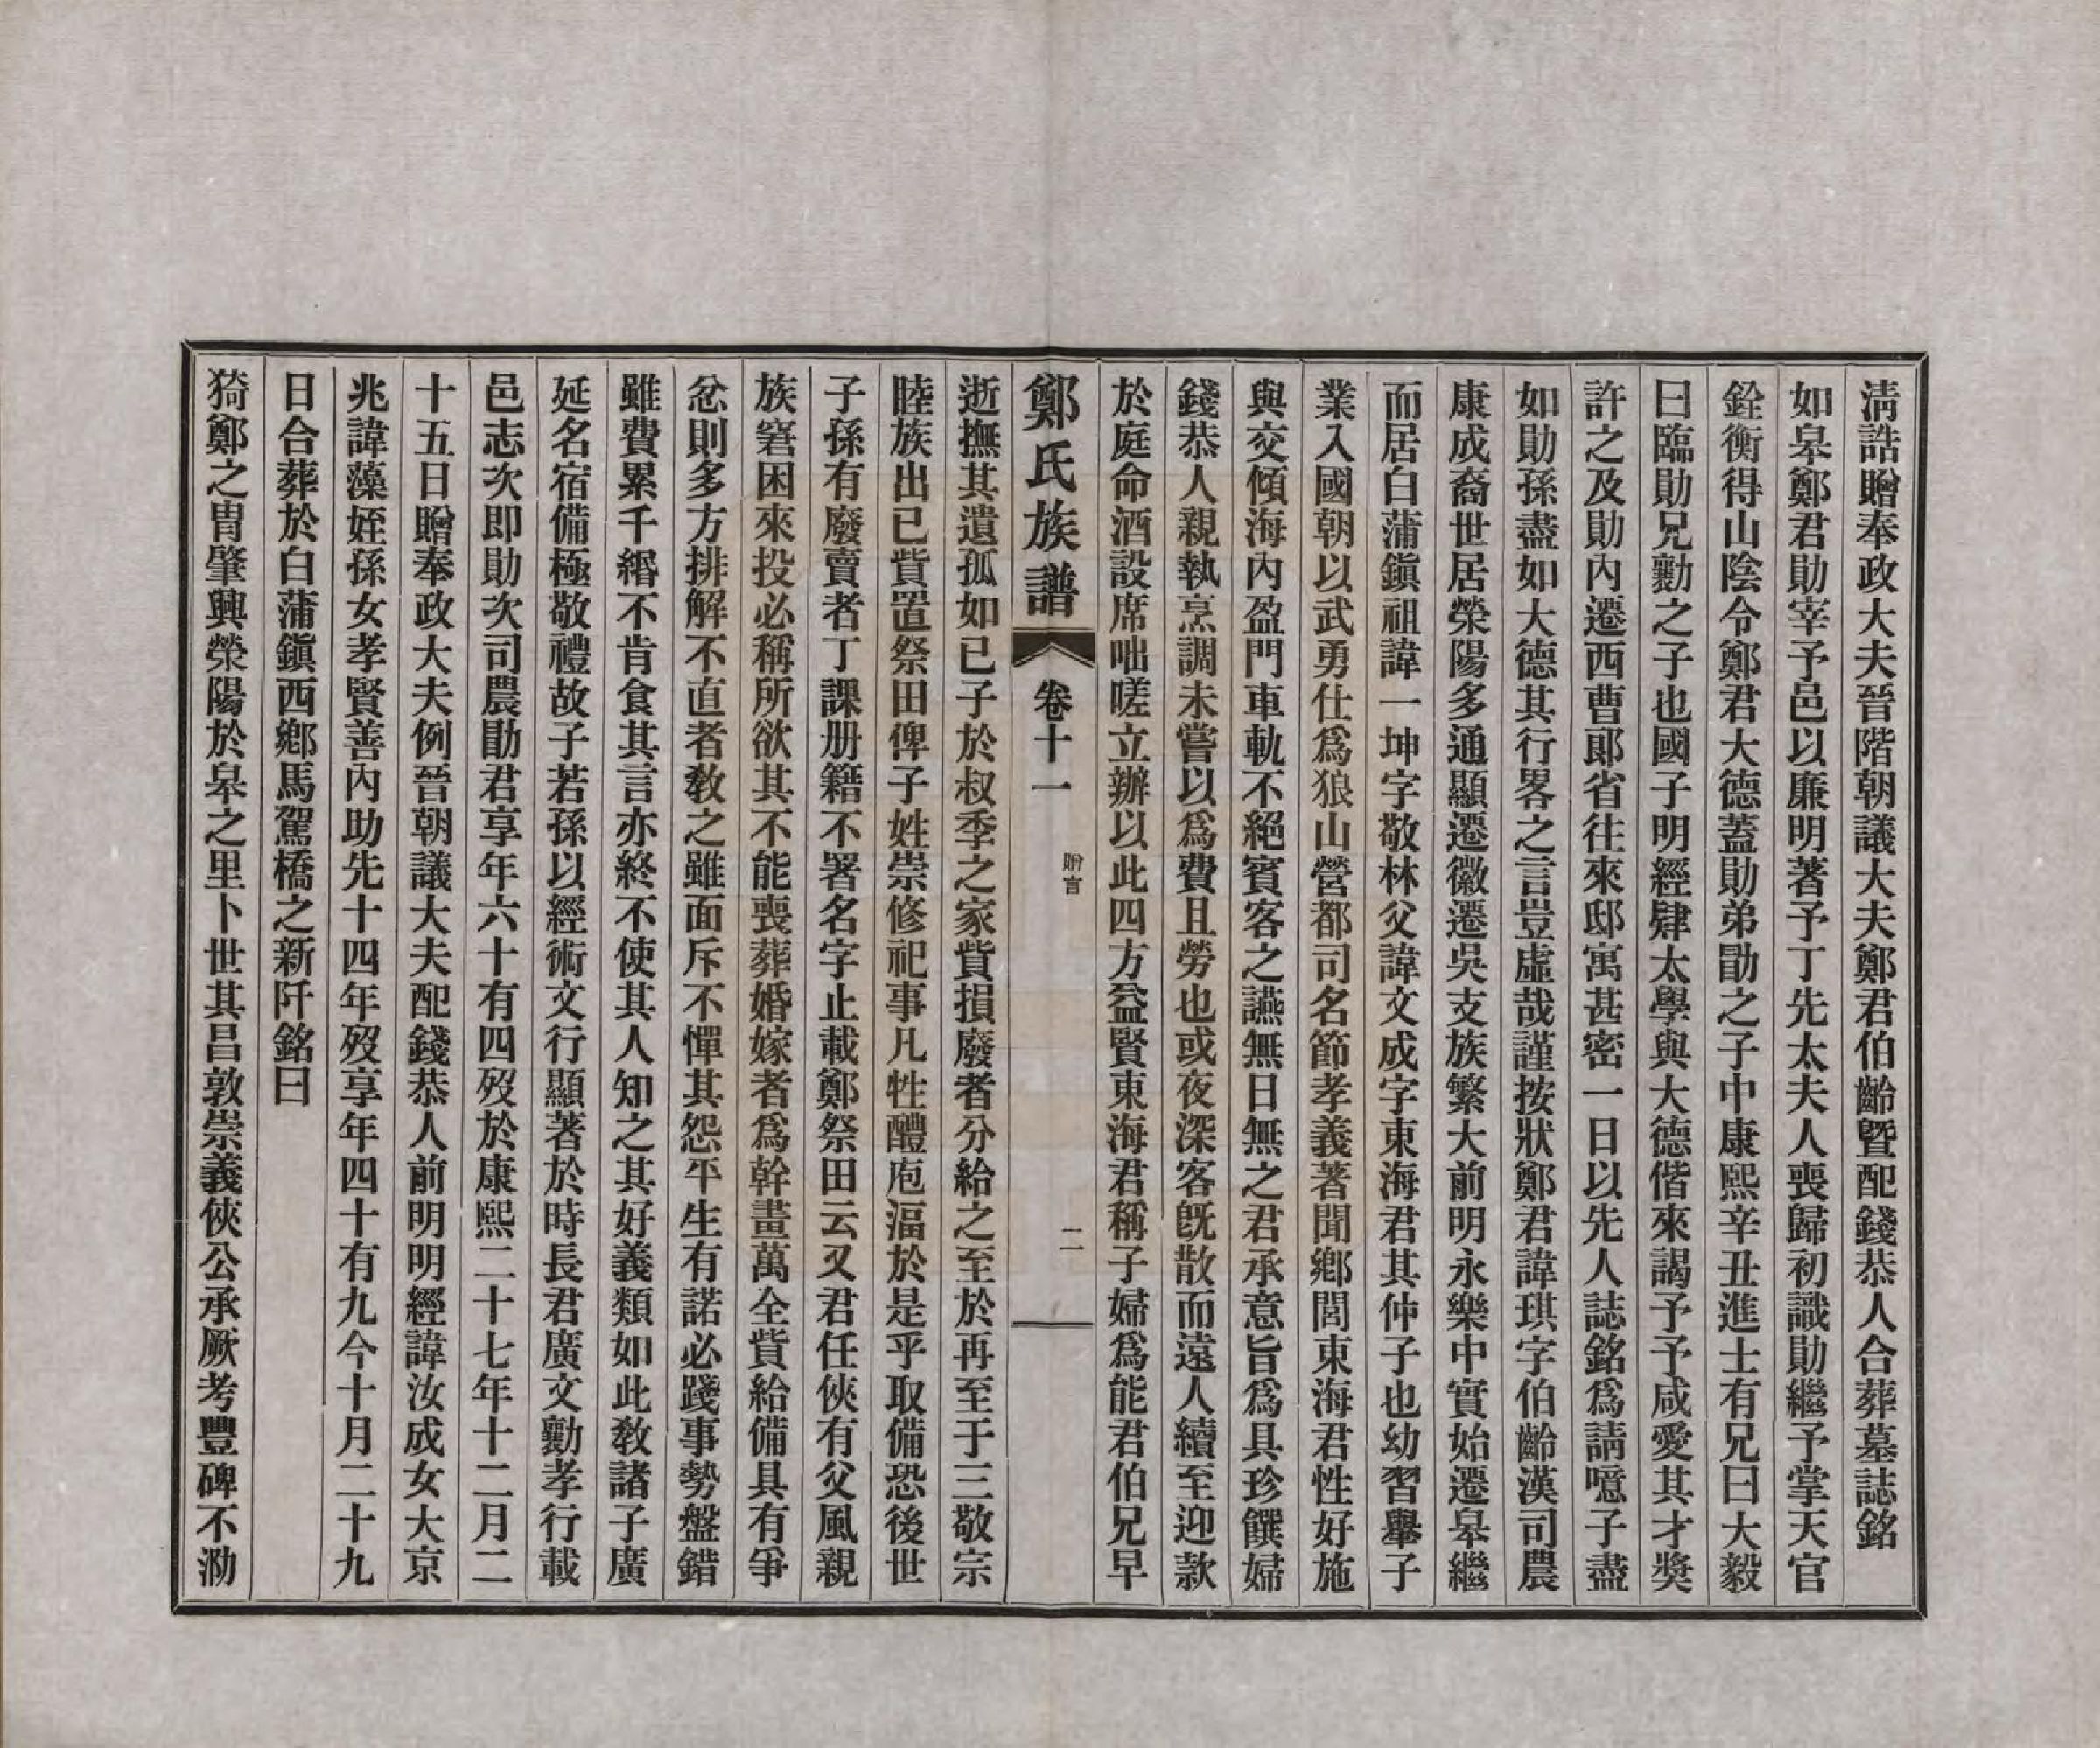 淸誥贈奉政大夫晉階朝議大夫鄭君伯齡曁配錢恭人合葬墓誌銘
如皋鄭君勛宰予邑以廉明著予丁先太夫人喪歸初識勛繼予掌天官
銓衡得山陰令鄭君大德蓋勛弟勖之子中康熙辛丑進士有兄曰大毅
曰臨勛兄勷之子也國子明經肄太學與大德偕來謁予予咸愛其才奬
許之及勛內遷西曹郞省往來邸寓甚密一日以先人誌銘爲請噫子盡
如勛孫盡如大德其行畧之言豈虛哉謹按狀鄭君諱琪字伯齡漢司農
康成裔世居滎陽多通顯遷徽遷吳支族繁大前明永樂中實始遷皋繼
而居白蒲鎭祖諱一坤字敬林父諱文成字東海君其仲子也幼習擧子
業入國朝以武勇仕爲狼山營都司名節孝義著聞鄕閭東海君性好施
與交傾海內盈門車軌不絕賓客之讌無日無之君承意旨爲具珍饌婦
錢恭人親執烹調未嘗以爲費且勞也或夜深客旣散而遠人續至迎款
於庭命酒設席咄嗟立辦以此四方益賢東海君稱子婦爲能君伯兄早
鄭氏族譜 卷十一 贈言 二
逝撫其遺孤如已子於叔季之家貲損廢者分給之至於再至于三敬宗
睦族出已貲置祭田俾子姓崇修祀事凡牲醴庖湢於是乎取備恐後世
子孫有廢賣者丁課册籍不署名字止載鄭祭田云又君任俠有父風親
族窘困來投必稱所欲其不能喪葬婚嫁者爲幹畫萬全貲給備具有爭
忿則多方排解不直者敎之雖面斥不憚其怨平生有諾必踐事勢盤錯
雖費累千緡不肯食其言亦終不使其人知之其好義類如此敎諸子廣
延名宿備極敬禮故子若孫以經術文行顯著於時長君廣文勷孝行載
邑志次卽勛次司農勖君享年六十有四歿於康熙二十七年十二月二
十五日贈奉政大夫例晉朝議大夫配錢恭人前明明經諱汝成女大京
兆諱藻姪孫女孝賢善內助先十四年歿享年四十有九今十月二十九
日合葬於白蒲鎭西鄕馬駕橋之新阡銘曰
猗鄭之胄肇興滎陽於皋之里卜世其昌敦崇義俠公承厥考豐碑不泐